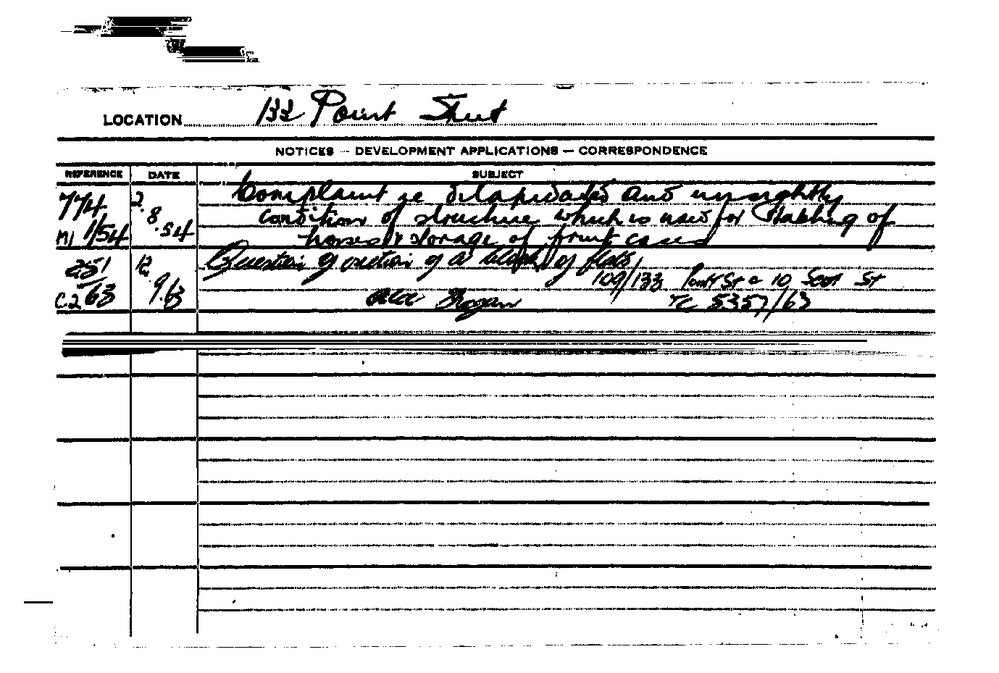 LOCATION 133 Point Street
NOTICES — DEVELOPMENT APPLICATIONS — CORRESPONDENCE
REFERENCE DATE SUBJECT
774 2. Complaint re dilapidated and unsightly
M1 1/54 8 .54 condition of structure which is used for stabling of
horses & storage of fruit cases
251 12. Question of erection of a block of flats
C.2 63 9.63 109/133 Point St & 10 Scott St
TC 5357/63